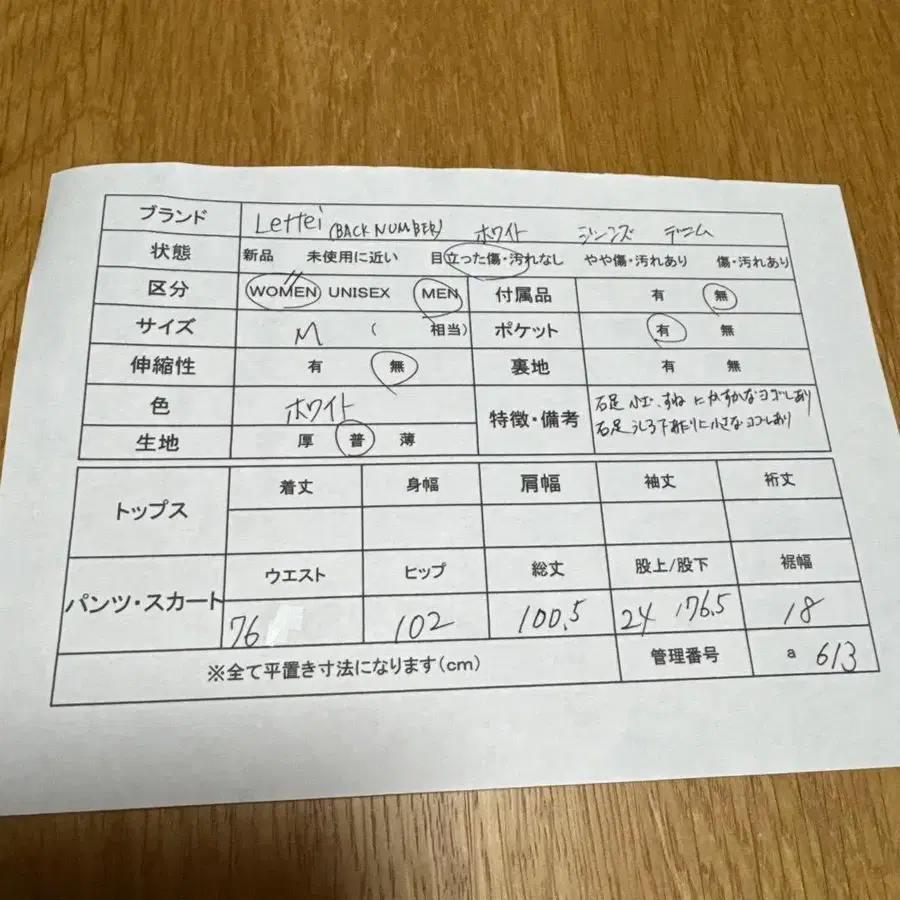 ブランド Lettei (BACK NUMBER) ホワイト ジーンズ デニム
状態 新品 未使用に近い 目立った傷・汚れなし やや傷・汚れあり 傷・汚れあり
区分 WOMEN UNISEX MEN 付属品 有 無
サイズ M ( 相当) ポケット 有 無
伸縮性 有 無 裏地 有 無
色 ホワイト 特徴・備考 右足 すね にかすかなヨゴレあり
生地 厚 普 薄 右足うしろ下あたりに小さなヨゴレあり
トップス 着丈 身幅 肩幅 袖丈 裄丈
パンツ・スカート ウエスト ヒップ 総丈 股上/股下 裾幅
76 102 100.5 24 176.5 18
※全て平置き寸法になります(cm) 管理番号 a 613